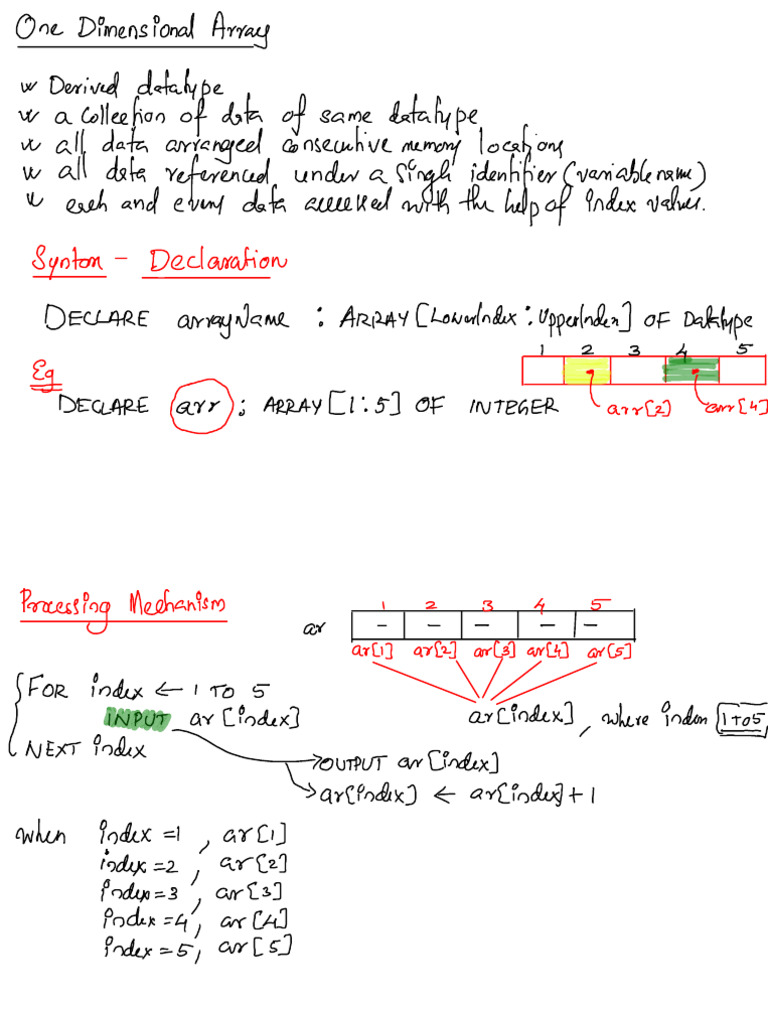 One Dimensional Array
w Derived datatype
w a collection of data of same datatype
w all data arranged consecutive memory locations
w all data referenced under a single identifier (variable name)
w each and every data accessed with the help of index values.
Syntax - Declaration
DECLARE arrayName : ARRAY[LowerIndex : UpperIndex] OF Datatype
1 2 3 4 5
Eg
DECLARE arr : ARRAY[1:5] OF INTEGER
arr[2] arr[4]
Processing Mechanism
1 2 3 4 5
ar – – – – –
ar[1] ar[2] ar[3] ar[4] ar[5]
FOR index ← 1 TO 5
INPUT ar[index]
ar[index], where index 1 to 5
NEXT index
OUTPUT ar[index]
ar[index] ← ar[index]+1
when index=1, ar[1]
index=2, ar[2]
index=3, ar[3]
index=4, ar[4]
index=5, ar[5]